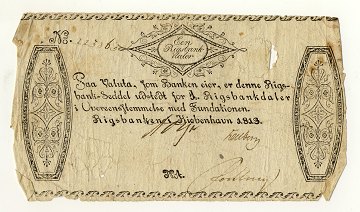 No.
Een
Rigsbank-
daler
Paa Valuta, som Banken eier, er denne Rigs-
bank-Seddel udstedt for 1 Rigsbankdaler
i Overeensstemmelse med Fundationen.
Rigsbanken i Kiøbenhavn 1813.